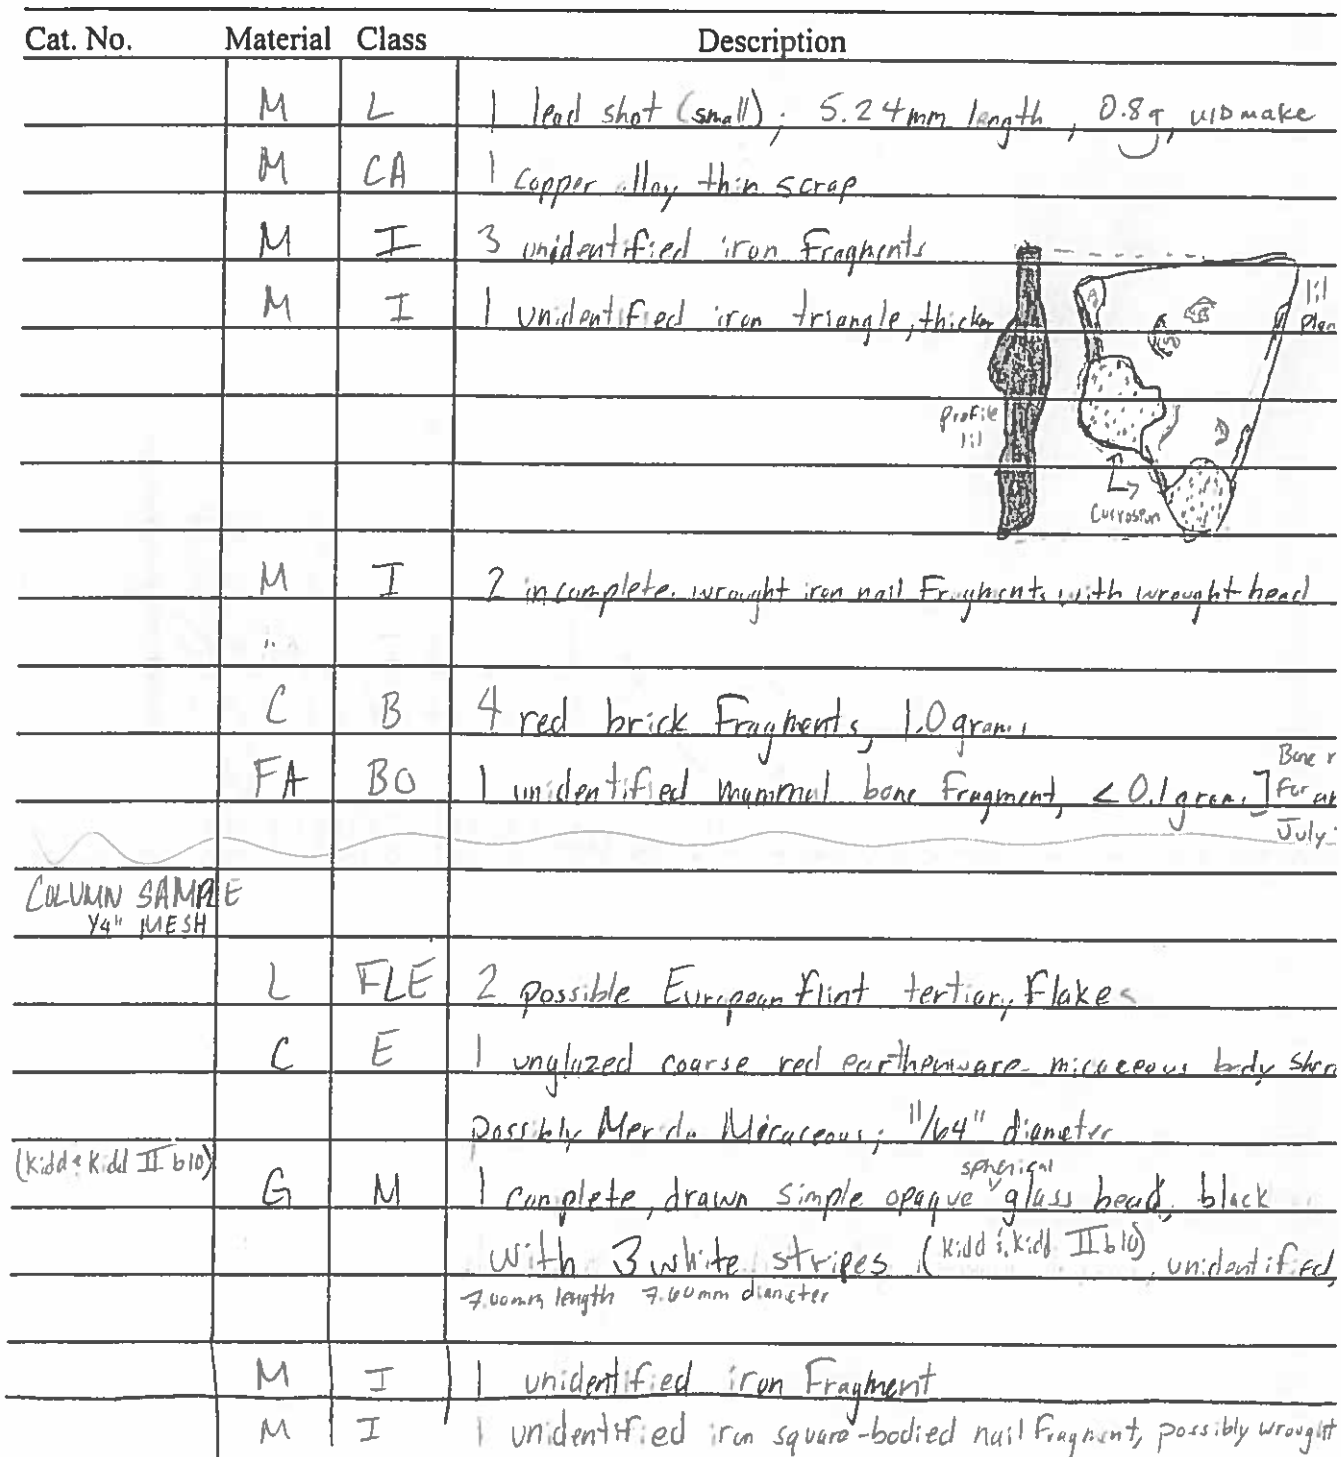 Cat. No. Material Class Description
M L 1 lead shot (small); 5.24mm length, 0.8g, UID make
M CA 1 copper alloy thin scrap
M I 3 unidentified iron Fragments
M I 1 unidentified iron triangle, thicker
1:1
Plan
profile
1:1
Corrosion
M I 2 incomplete wrought iron nail Fragments with wrought head
C B 4 red brick Fragments, 1.0 grams
FA BO 1 unidentified mammal bone Fragment, <0.1 grams]
Bone
For
July
COLUMN SAMPLE
1/4" MESH
L FLE 2 possible European flint tertiary Flakes
C E 1 unglazed coarse red earthenware micaceous body
possibly Merida Micaceous; 11/64" diameter
(Kidd & Kidd II b10)
G M 1 complete, drawn simple opaque spherical glass bead, black
with 3 white stripes (Kidd & Kidd II b10), unidentified,
7.00mm length 7.60mm diameter
M I 1 unidentified iron Fragment
M I 1 unidentified iron square-bodied nail Fragment, possibly wrought